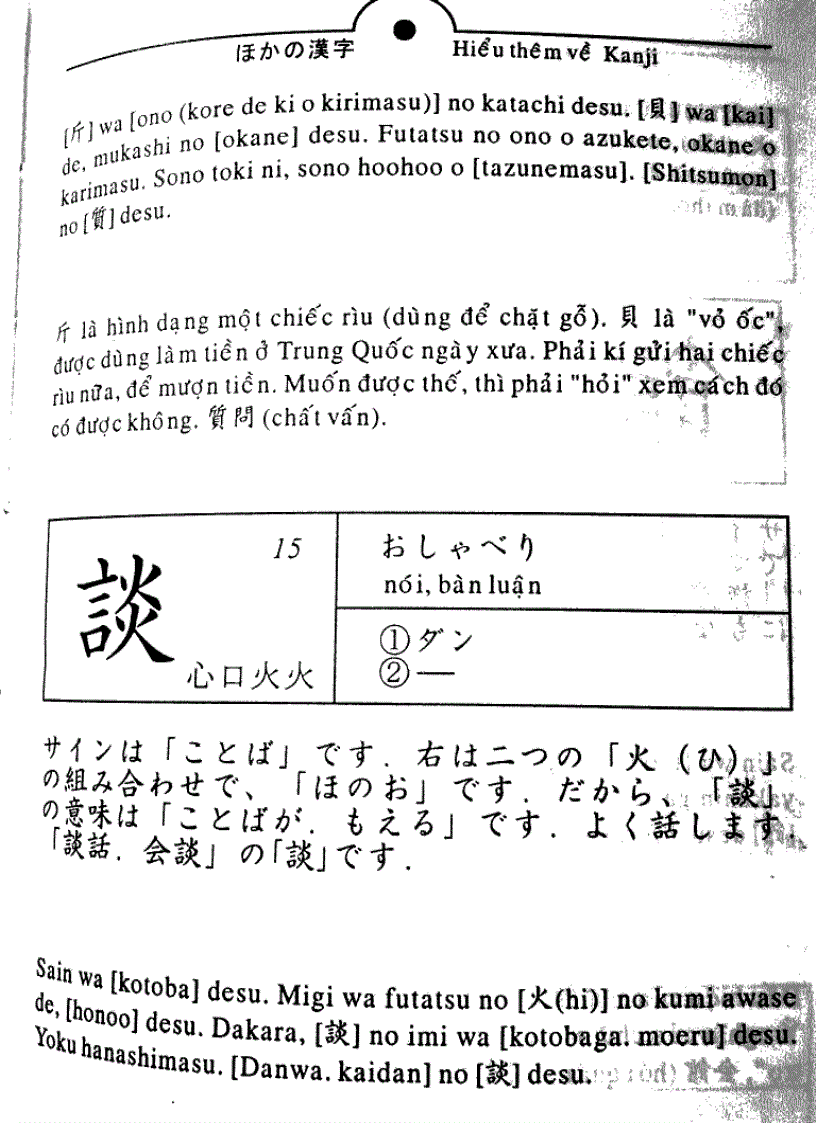 ほかの漢字
Hiểu thêm về Kanji
[斤] wa [ono (kore de ki o kirimasu)] no katachi desu. [貝] wa [kai]
de, mukashi no [okane] desu. Futatsu no ono o azukete, okane o
karimasu. Sono toki ni, sono hoohoo o [tazunemasu]. [Shitsumon]
no [質] desu.
斤 là hình dạng một chiếc rìu (dùng để chặt gỗ). 貝 là "vỏ ốc",
được dùng làm tiền ở Trung Quốc ngày xưa. Phải kí gửi hai chiếc
rìu nữa, để mượn tiền. Muốn được thế, thì phải "hỏi" xem cách đó
có được không. 質問 (chất vấn).
談
15
心口火火
おしゃべり
nói, bàn luận
①ダン
②—
サインは「ことば」です. 右は二つの「火 (ひ)」
の組み合わせで、「ほのお」です. だから、「談」
の意味は「ことばが. もえる」です. よく話します.
「談話. 会談」の「談」です.
Sain wa [kotoba] desu. Migi wa futatsu no [火(hi)] no kumi awase
de, [honoo] desu. Dakara, [談] no imi wa [kotobaga. moeru] desu.
Yoku hanashimasu. [Danwa. kaidan] no [談] desu.